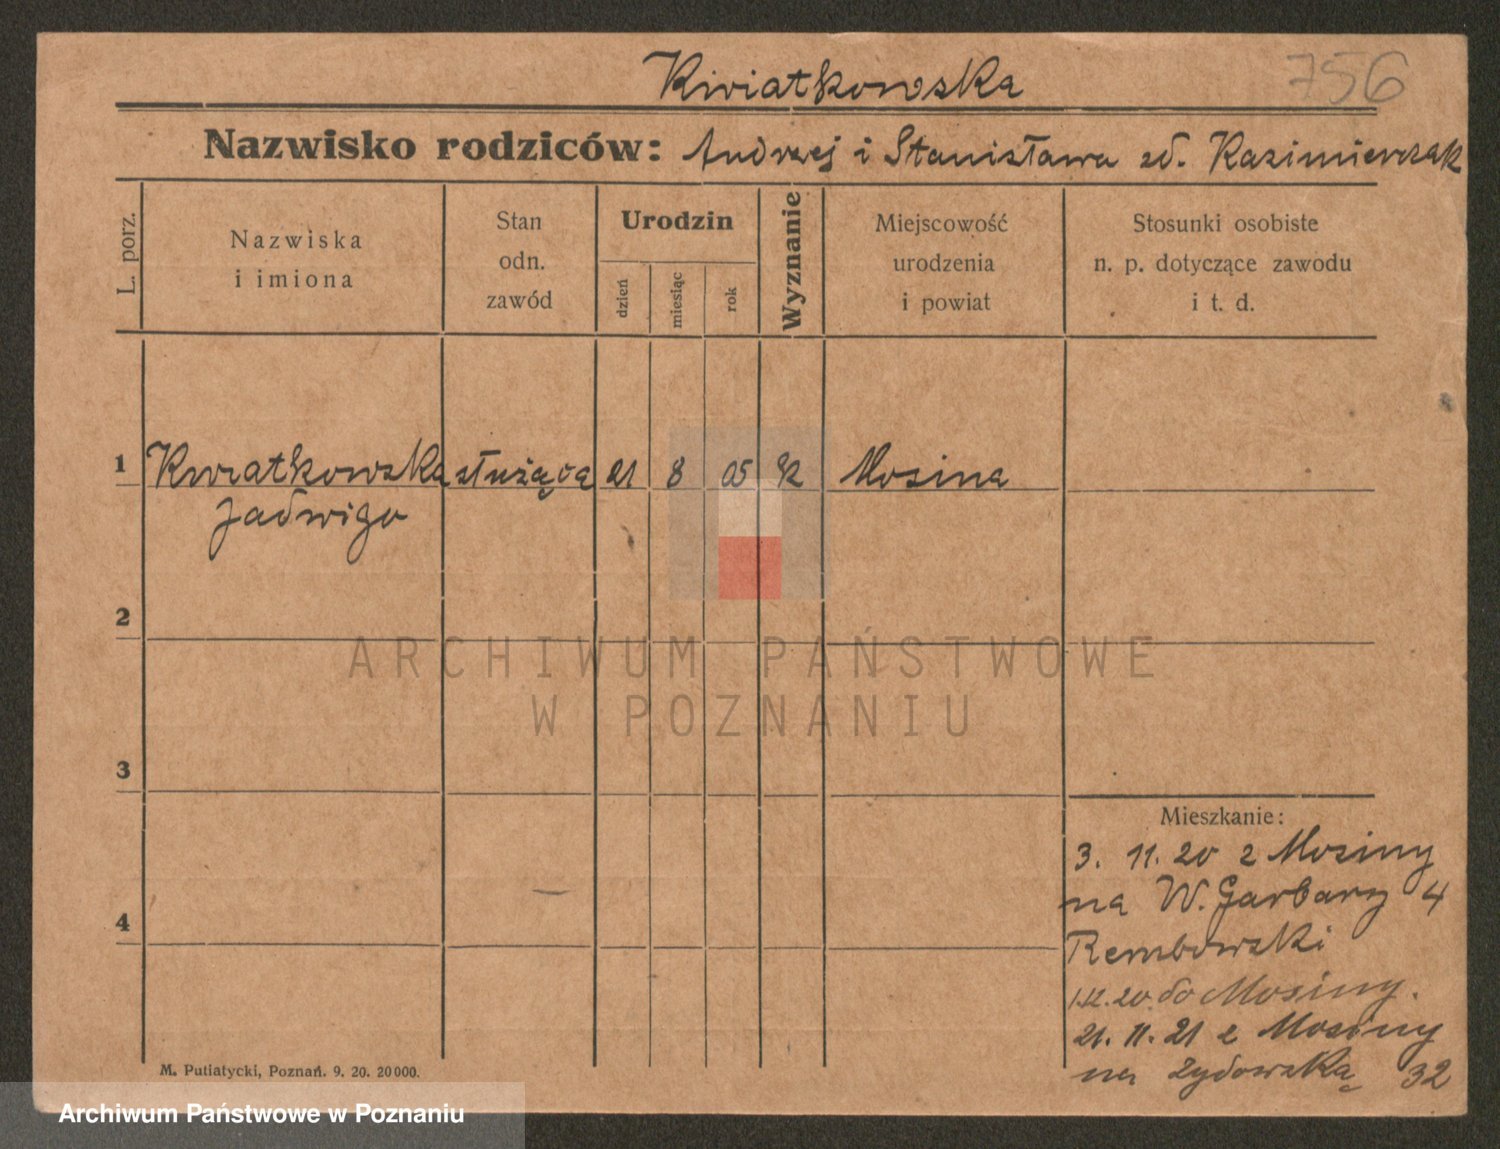 Kwiatkowska 756
Nazwisko rodziców: Andrzej i Stanisława zd. Kazimierczak
L. porz.
Nazwiska
i imiona
Stan
odn.
zawód
Urodzin
dzień
miesiąc
rok
Wyznanie
Miejscowość
urodzenia
i powiat
Stosunki osobiste
n. p. dotyczące zawodu
i t. d.
1 Kwiatkowska służąca 21 8 05 k Mosina
Jadwiga
2
3
4
ARCHIWUM PAŃSTWOWE
W POZNANIU
Mieszkanie:
3. 11. 20 z Mosiny
na W. Garbary 4
Rembowski
1.12.20 do Mosiny.
21. 11. 21 z Mosiny
na Żydowską 32
M. Putiatycki, Poznań. 9. 20. 20000.
Archiwum Państwowe w Poznaniu